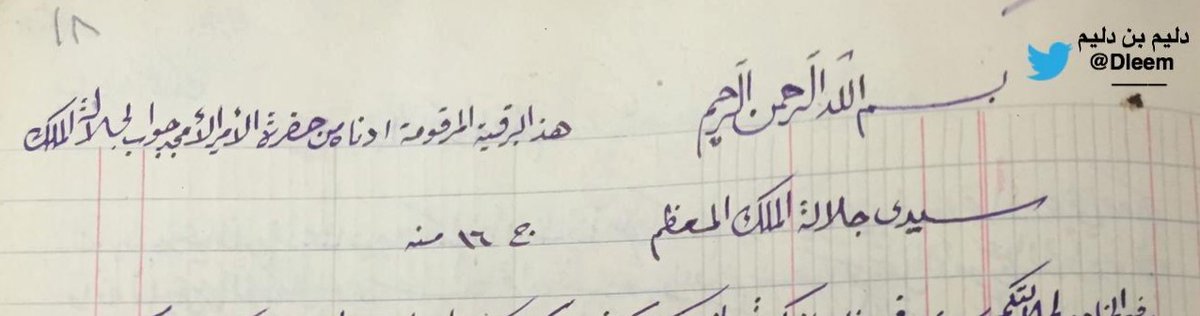 ١٨
دليم بن دليم
@Dleem
بسم الله الرحمن الرحيم
هذا البرقية المرقومة ادناه من حضرة الأمير الأمجد جواب لجلالة الملك
سيدي جلالة الملك المعظم
ج ١٦ منه